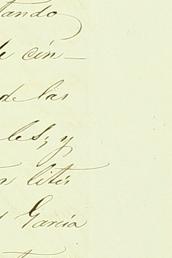 tando
de cin-
de las
les; y
n litis
García